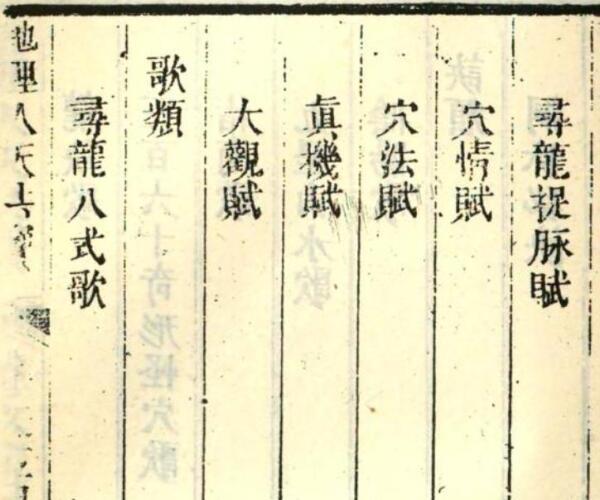 尋龍捉脉賦
穴情賦
穴法賦
眞機賦
大觀賦
歌類
尋龍八式歌
地理人天共寳